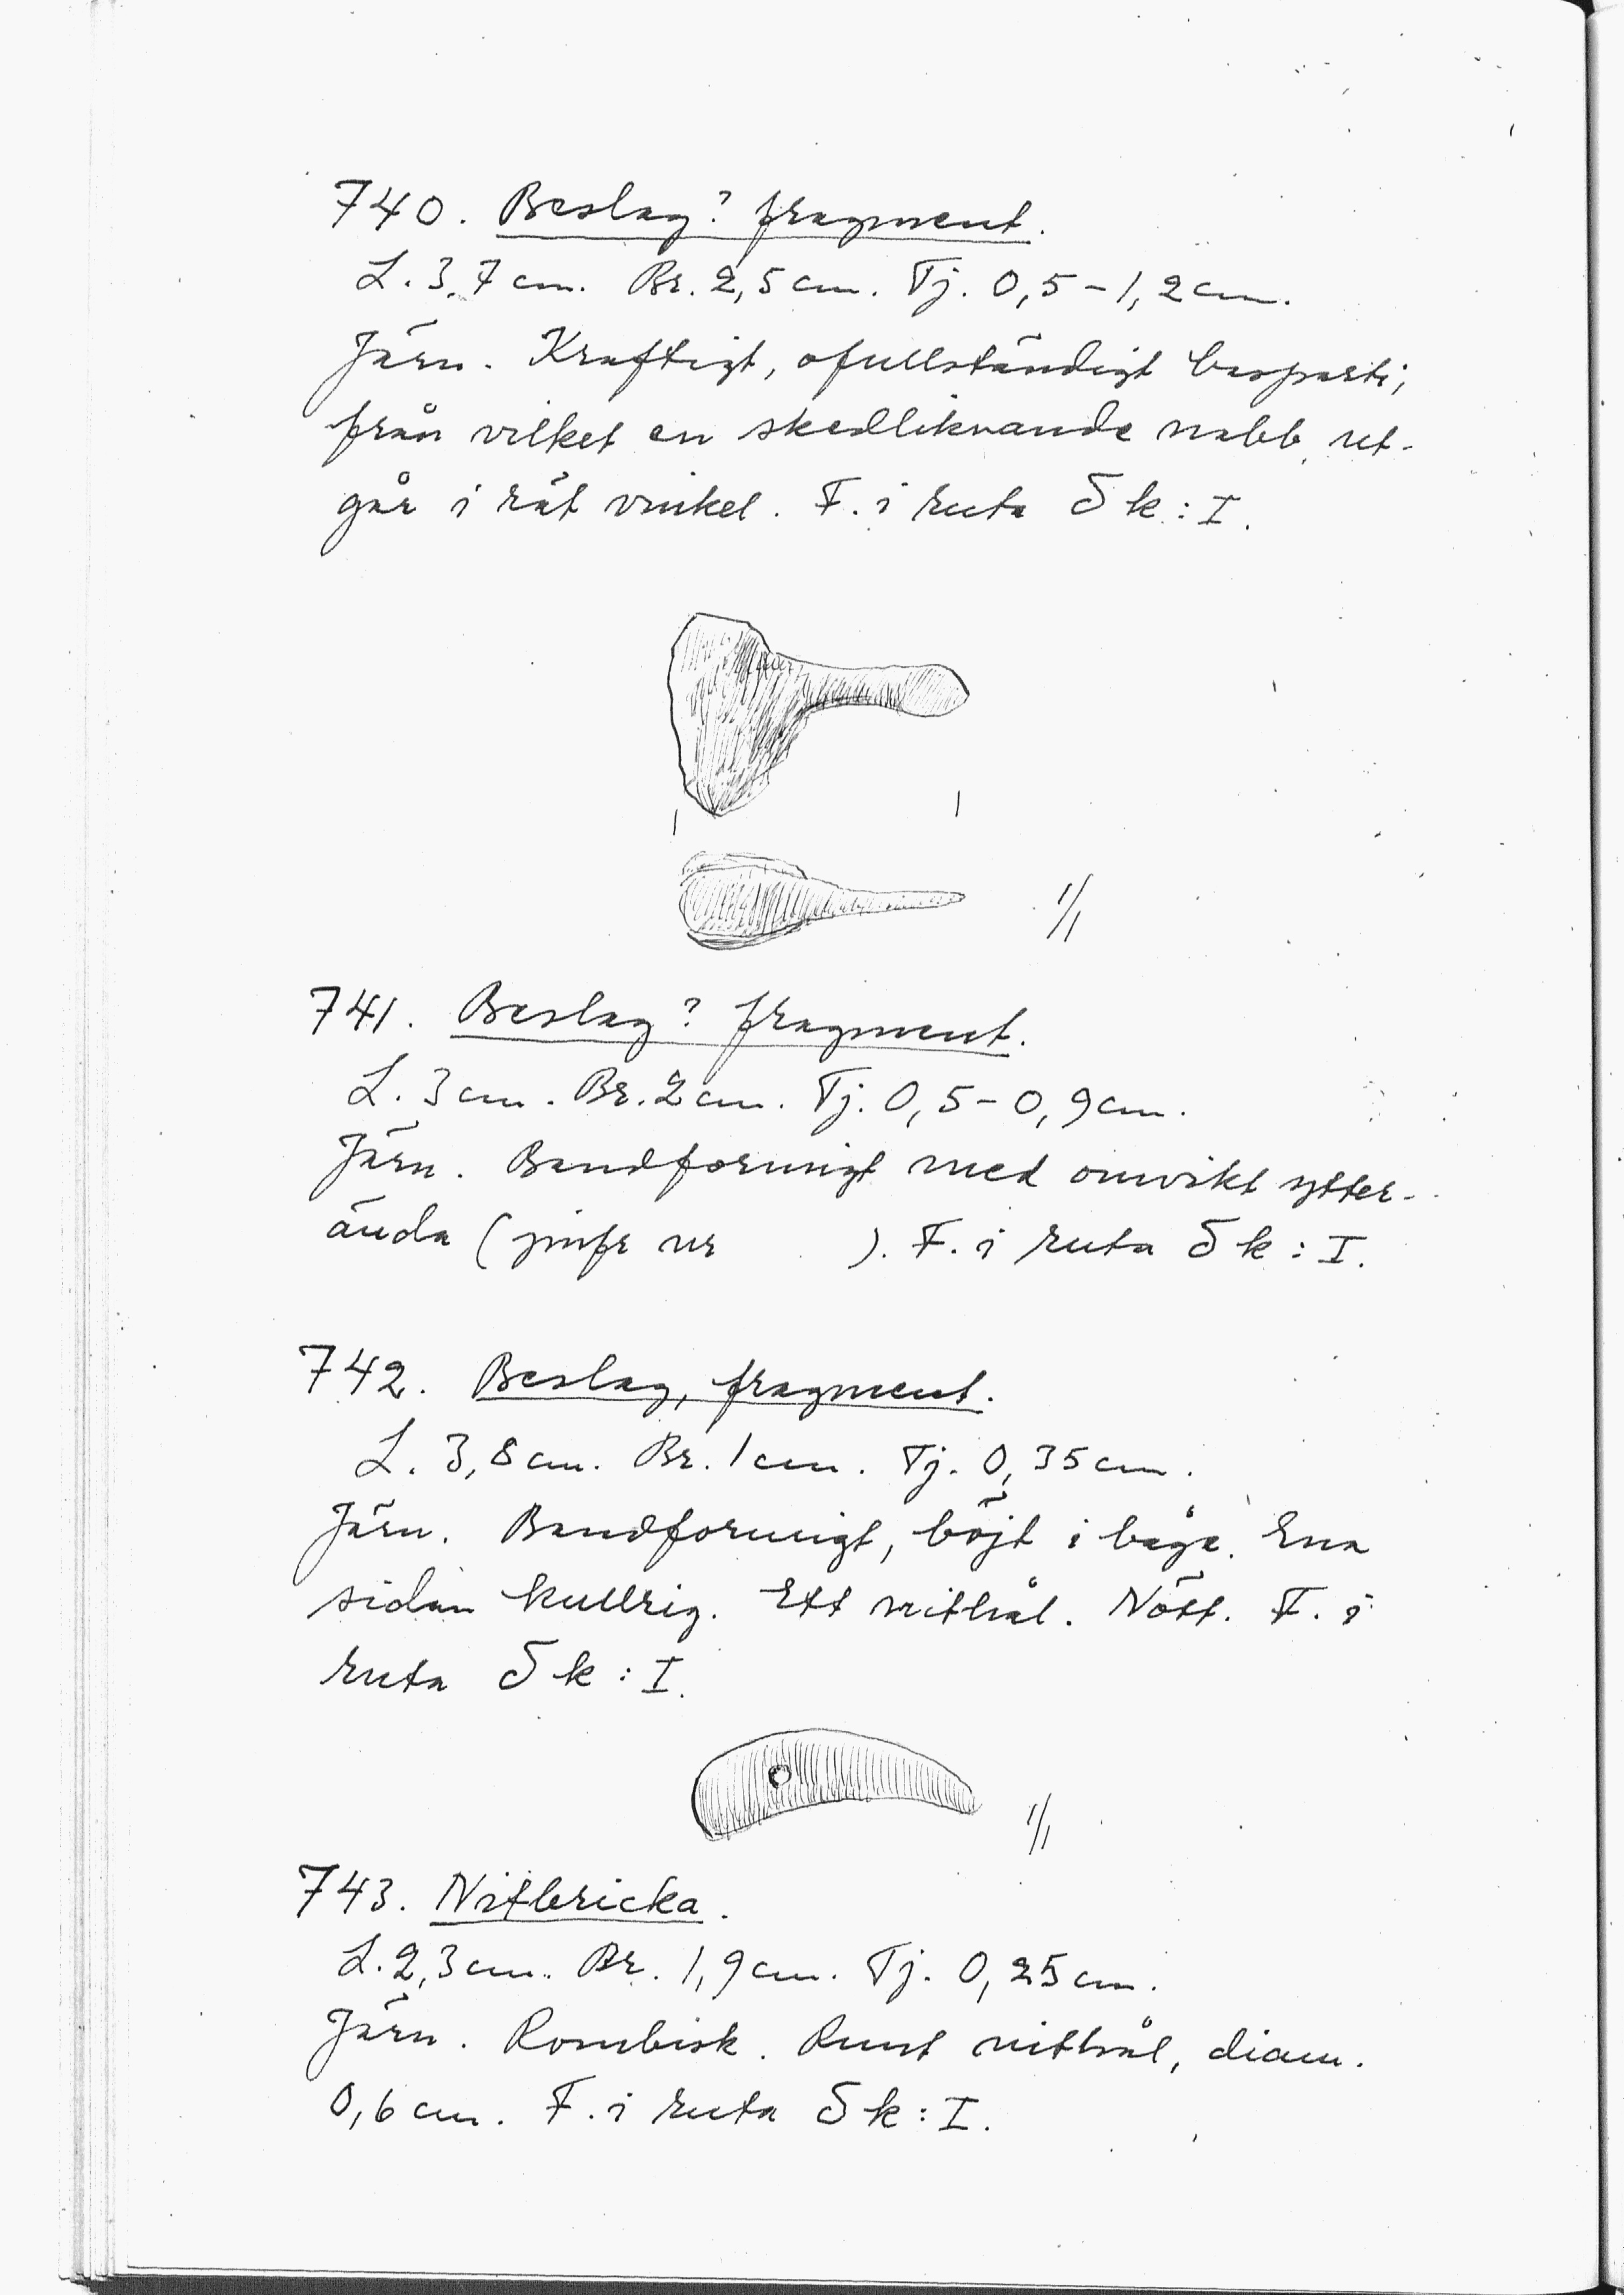 740. Beslag? fragment.
L. 3,7 cm. Br. 2,5 cm. Tj. 0,5-1,2 cm.
Järn. Kraftigt, ofullständigt basparti,
från vilket en skedliknande nabb ut-
går i rät vinkel. F. i ruta δ k : I.
1/1
741. Beslag? fragment.
L. 3 cm. Br. 2 cm. Tj. 0,5-0,9 cm.
Järn. Bandformigt med omvikt ytter-
ända (jmfr nr ). F. i ruta δ k : I.
742. Beslag, fragment.
L. 3,8 cm. Br. 1 cm. Tj. 0,35 cm.
Järn. Bandformigt, böjt i båge. Ena
sidan kullrig. Ett nithål. Nött. F. i
ruta δ k : I.
1/1
743. Nitbricka.
L. 2,3 cm. Br. 1,9 cm. Tj. 0,25 cm.
Järn. Rombisk. Runt nithål, diam.
0,6 cm. F. i ruta δ k : I.